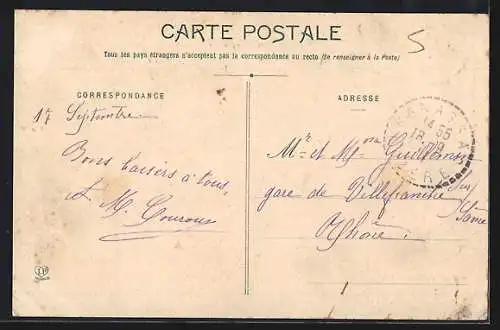 CARTE POSTALE
5
Tous les pays étrangers n'acceptent pas la correspondance au recto (Se renseigner à la Poste)
CORRESPONDANCE
ADRESSE
17 Septembre
Bons baisers à tous,
M.
Mr et Mme Guillemin
gare de Villefranche sur
Saône
Rhône.
14 55
18